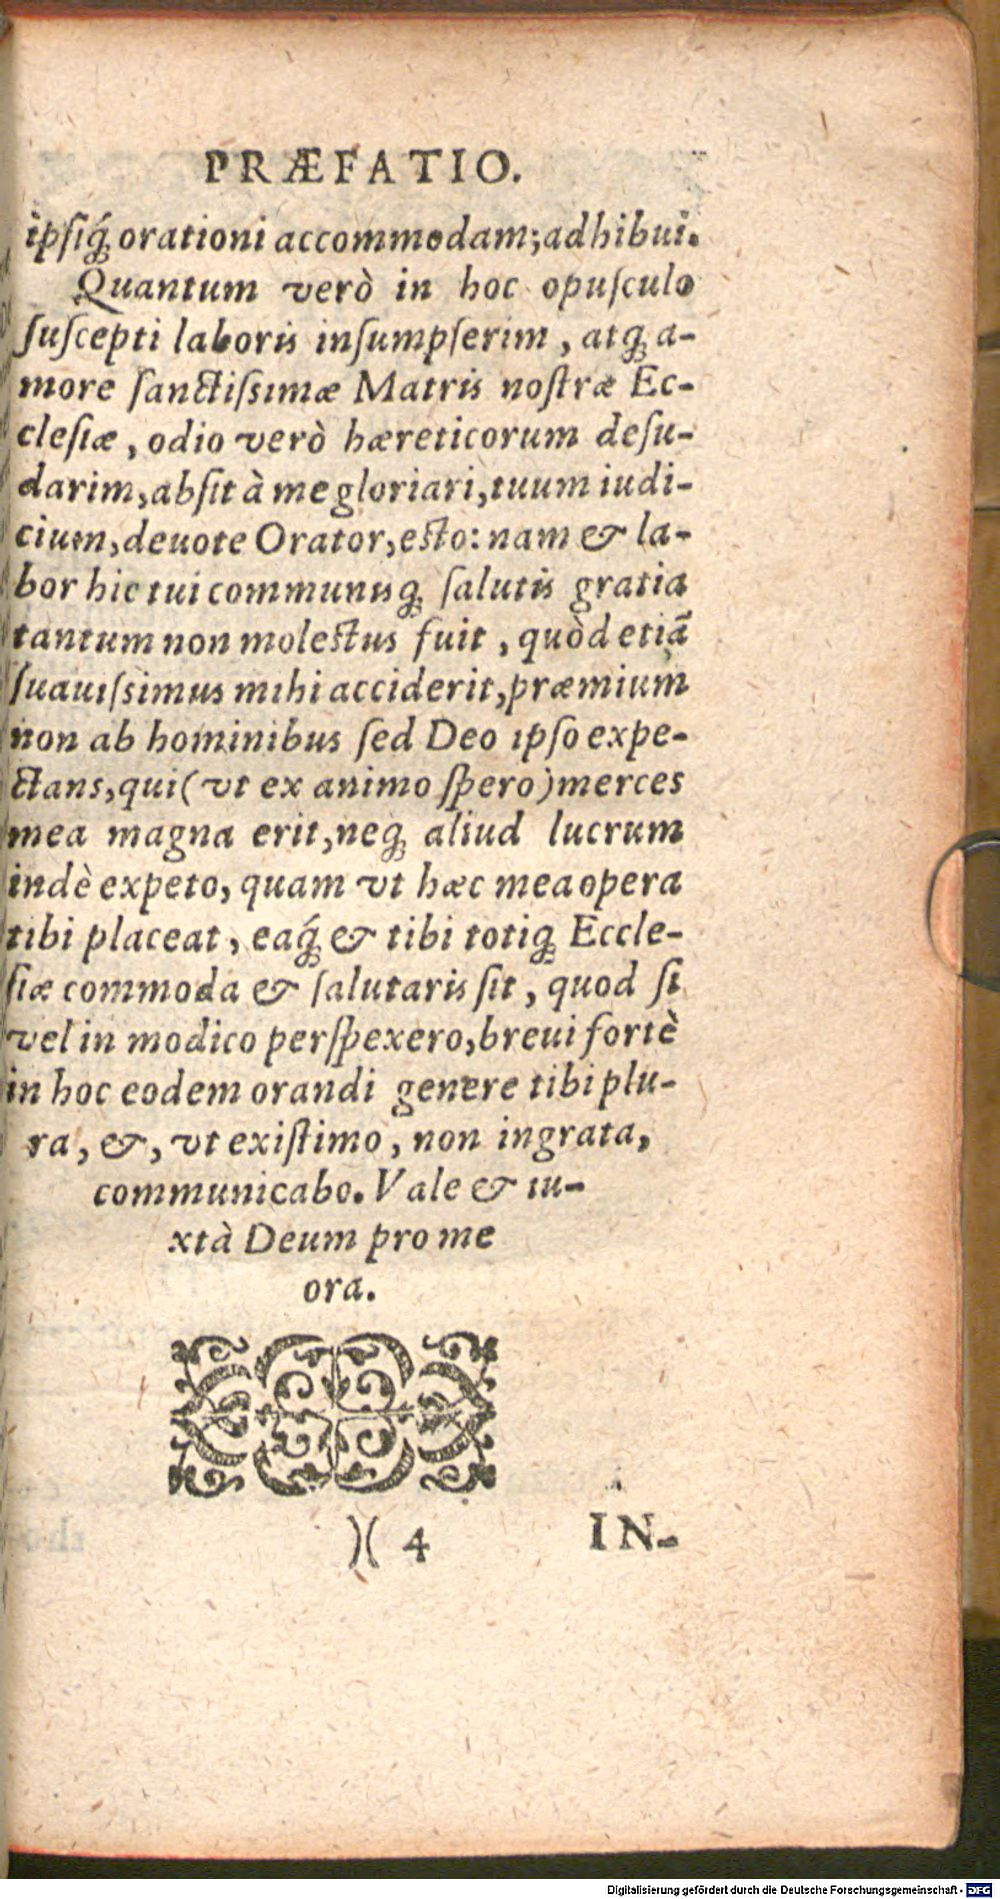 PRÆFATIO.
ipsiq́; orationi accommodam; adhibui.
Quantum verò in hoc opuſculo
ſuſcepti laboris inſumpſerim, atq; a-
more ſanctiſsimæ Matris noſtræ Ec-
cleſiæ, odio verò hæreticorum deſu-
darim, abſit à me gloriari, tuum iudi-
cium, deuote Orator, eſto: nam & la-
bor hic tui communisq; ſalutis gratia
tantum non moleſtus fuit, quòd etiã
ſuauiſsimus mihi acciderit, præmium
non ab hominibus ſed Deo ipſo expe-
ctans, qui (vt ex animo ſpero) merces
mea magna erit, neq; aliud lucrum
indè expeto, quam vt hæc mea opera
tibi placeat, eaq́; & tibi totiq; Eccle-
ſiæ commoda & ſalutaris ſit, quod ſi
vel in modico perſpexero, breui fortè
in hoc eodem orandi genere tibi plu-
ra, &, vt exiſtimo, non ingrata,
communicabo. Vale & iu-
xtà Deum pro me
ora.
)( 4 IN-
Digitalisierung gefördert durch die Deutsche Forschungsgemeinschaft - DFG